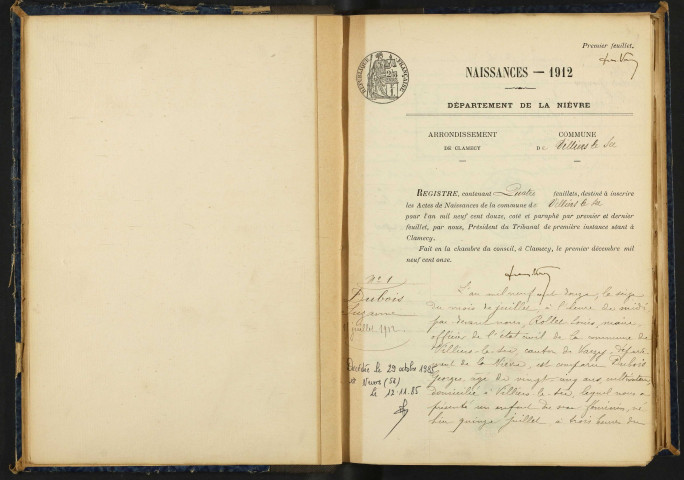 Premier feuillet.
RÉPUBLIQUE FRANÇAISE
NAISSANCES — 1912
DÉPARTEMENT DE LA NIÈVRE
ARRONDISSEMENT
DE CLAMECY
COMMUNE
DE Villiers le Sec
REGISTRE, contenant feuillets, destiné à inscrire
les Actes de Naissances de la commune de Villiers le Sec
pour l'an mil neuf cent douze, coté et paraphé par premier et dernier
feuillet, par nous, Président du Tribunal de première instance séant à
Clamecy.
Fait en la chambre du conseil, à Clamecy, le premier décembre mil
neuf cent onze.
N° 1
Dubois
Suzanne
juillet 1912
Décédée le 29 octobre 1985
(58)
le 12.11.85
L'an mil neuf cent douze, le seize
du mois de juillet à l'heure de midi
par devant nous, Louis, maire,
officier de l'état civil de la commune de
Villiers-le-Sec, canton de Varzy, Départe
ment de la Nièvre, est comparu Dubois
Georges, âgé de vingt-cinq ans, cultivateur,
domicilié à Villiers-le-Sec, lequel nous a
présenté un enfant du sexe féminin, né
hier quinze juillet à trois heures du